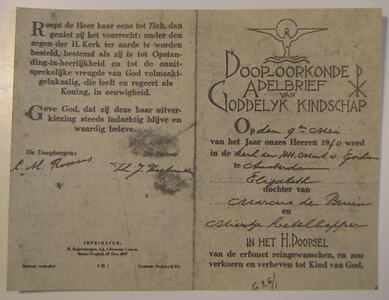 Roept de Heer haar eens tot Zich, dan
geniet zij het voorrecht: onder den
zegen der H. Kerk ter aarde te worden
besteld, bestemd als zij is tot Opstan-
ding-in-heerlijkheid en tot de onuit-
sprekelijke vreugde van God volmaakt-
gelukzalig, die leeft en regeert als
Koning, in eeuwigheid.
Geve God, dat zij deze haar uitver-
kiezing steeds indachtig blijve en
waardig beleve.
De Doopborgen:
De Pastoor
IMPRIMATUR:
101
DOOP-OORKONDE
ADELBRIEF
VAN
GODDELYK KINDSCHAP
Op den 9e Mei
van het Jaar onzes Heeren 1940 werd
in de kerk der HH. Mart. v. Gorkum
te Amsterdam
Elizabeth
dochter van
Marcus de Bruin
en
IN HET H. DOOPSEL
van de erfsmet reingewasschen, en zoo
verkoren en verheven tot Kind van God.